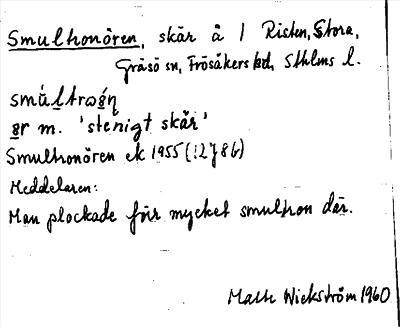 Smultronören, skär å l Risten, Stora,
Gräsö sn, Frösåkers hd, Sthlms l.
gr m. 'stenigt skär'
Smultronören ek 1955 (12786)
Meddelaren:
Man plockade förr mycket smultron där.
Mats Wickström 1960